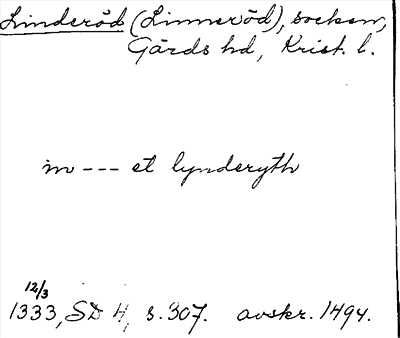 Linderöd (Linneröd), socken,
Gärds hd, Krist. l.
in --- et lynderyth
12/3
1333, SD 4, s. 307. avskr. 1494.